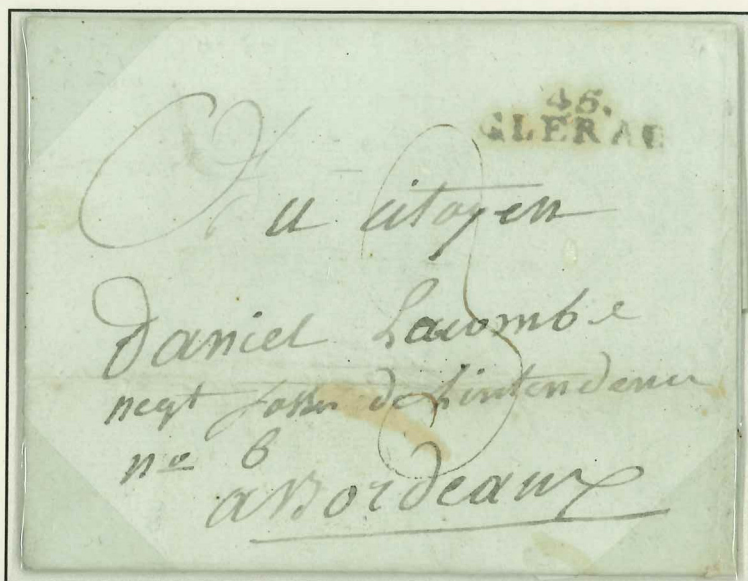 46.
CLERAC
Au citoyen
Daniel Lacombe
negt fossés de Lintendence
no 6
a Bordeaux
3